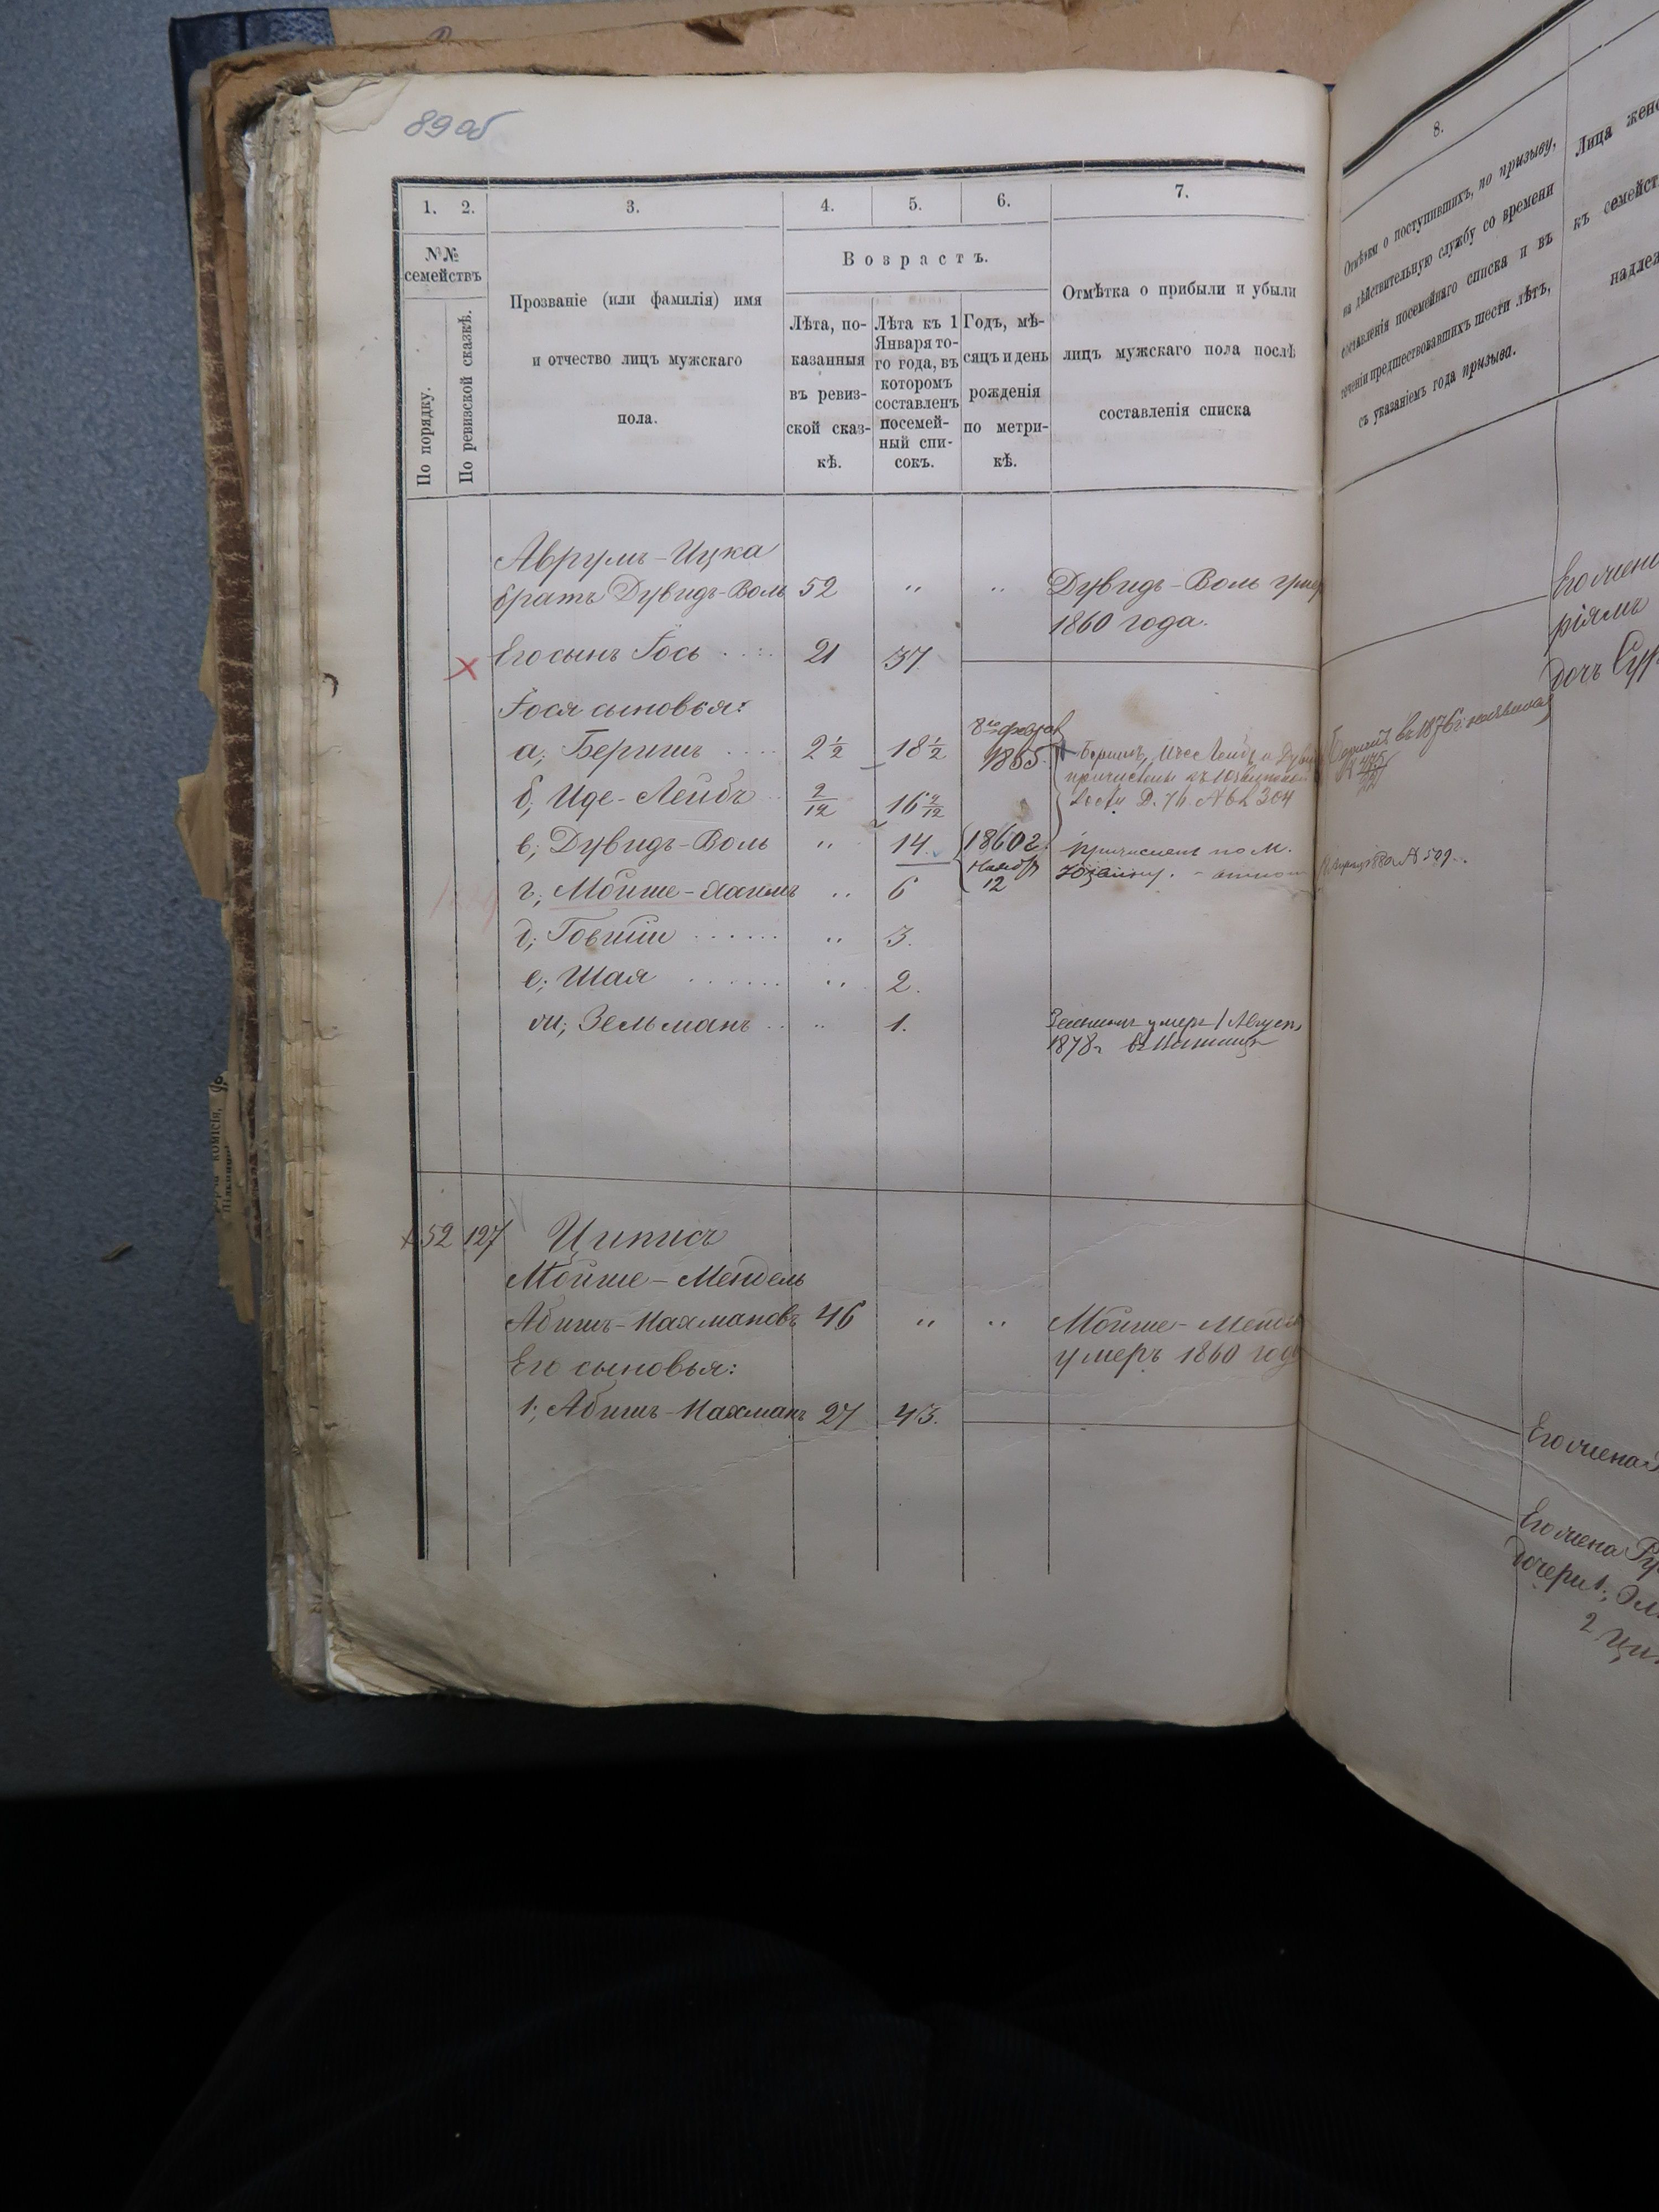 89 об
1. 2. 3. 4. 5. 6. 7.
№№ семействъ
По порядку.
По ревизской сказкѣ.
Прозваніе (или фамилія) имя
и отчество лицъ мужскаго
пола.
Возрастъ.
Лѣта, по-
казанныя
въ ревиз-
ской сказ-
кѣ.
Лѣта къ 1
Января то-
го года, въ
котором
составленъ
посемей-
ный спи-
сокъ.
Годъ, мѣ-
сяцъ и день
рожденія
по метри-
кѣ.
Отмѣтка о прибыли и убыли
лицъ мужскаго пола послѣ
составленія списка
Аврумъ-Ицка
братъ Дувидъ-Воль 52 " " Дувидъ-Воль умер
1860 года.
Его сынъ Іось 21 37
Іося сыновья:
а; Беришъ 2 1/2 18 1/2 1855
б; Иде-Лейбъ 2/12 16 2/12
в; Дувидъ-Воль " 14 1860 г.
Ноябр
12
причисленъ по м.
г; Мойше-Хаимъ " 6
д; Говший " 3.
е; Шая " 2.
ж; Зельманъ " 1. Зельманъ умеръ 1 Август
1878 г
52 127 Циписъ
Мойше-Мендель
Абишъ-Нахмановъ 46 " " Мойше-Мендел
умеръ 1860 год
Его сыновья:
1; Абишъ-Нахманъ 27 43.
8.
Отмѣтки о поступившихъ, по призыву,
на дѣйствительную службу со времени
составленія посемейнаго списка и въ
теченіи предшествовавшихъ шести лѣтъ,
съ указаніемъ года призыва.
Лица женс
къ семейст
надлеж
Его жена
ріямъ
дочь Сур
въ 1876 г.
Его жена
Его жена Ру
дочери 1; Эл
2 Ци